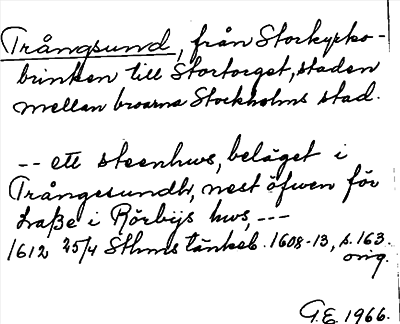 Trångsund, från Storkyrko-
brinken till Stortorget, staden
mellan broarna Stockholms stad.
-- ett steenhws, beläget i
Trångesundh, nest öfwen för
Laße i Rörbijs hws, ---
1612 25/4 Sthms tänkeb. 1608-13, s. 163.
orig.
G.E. 1966.